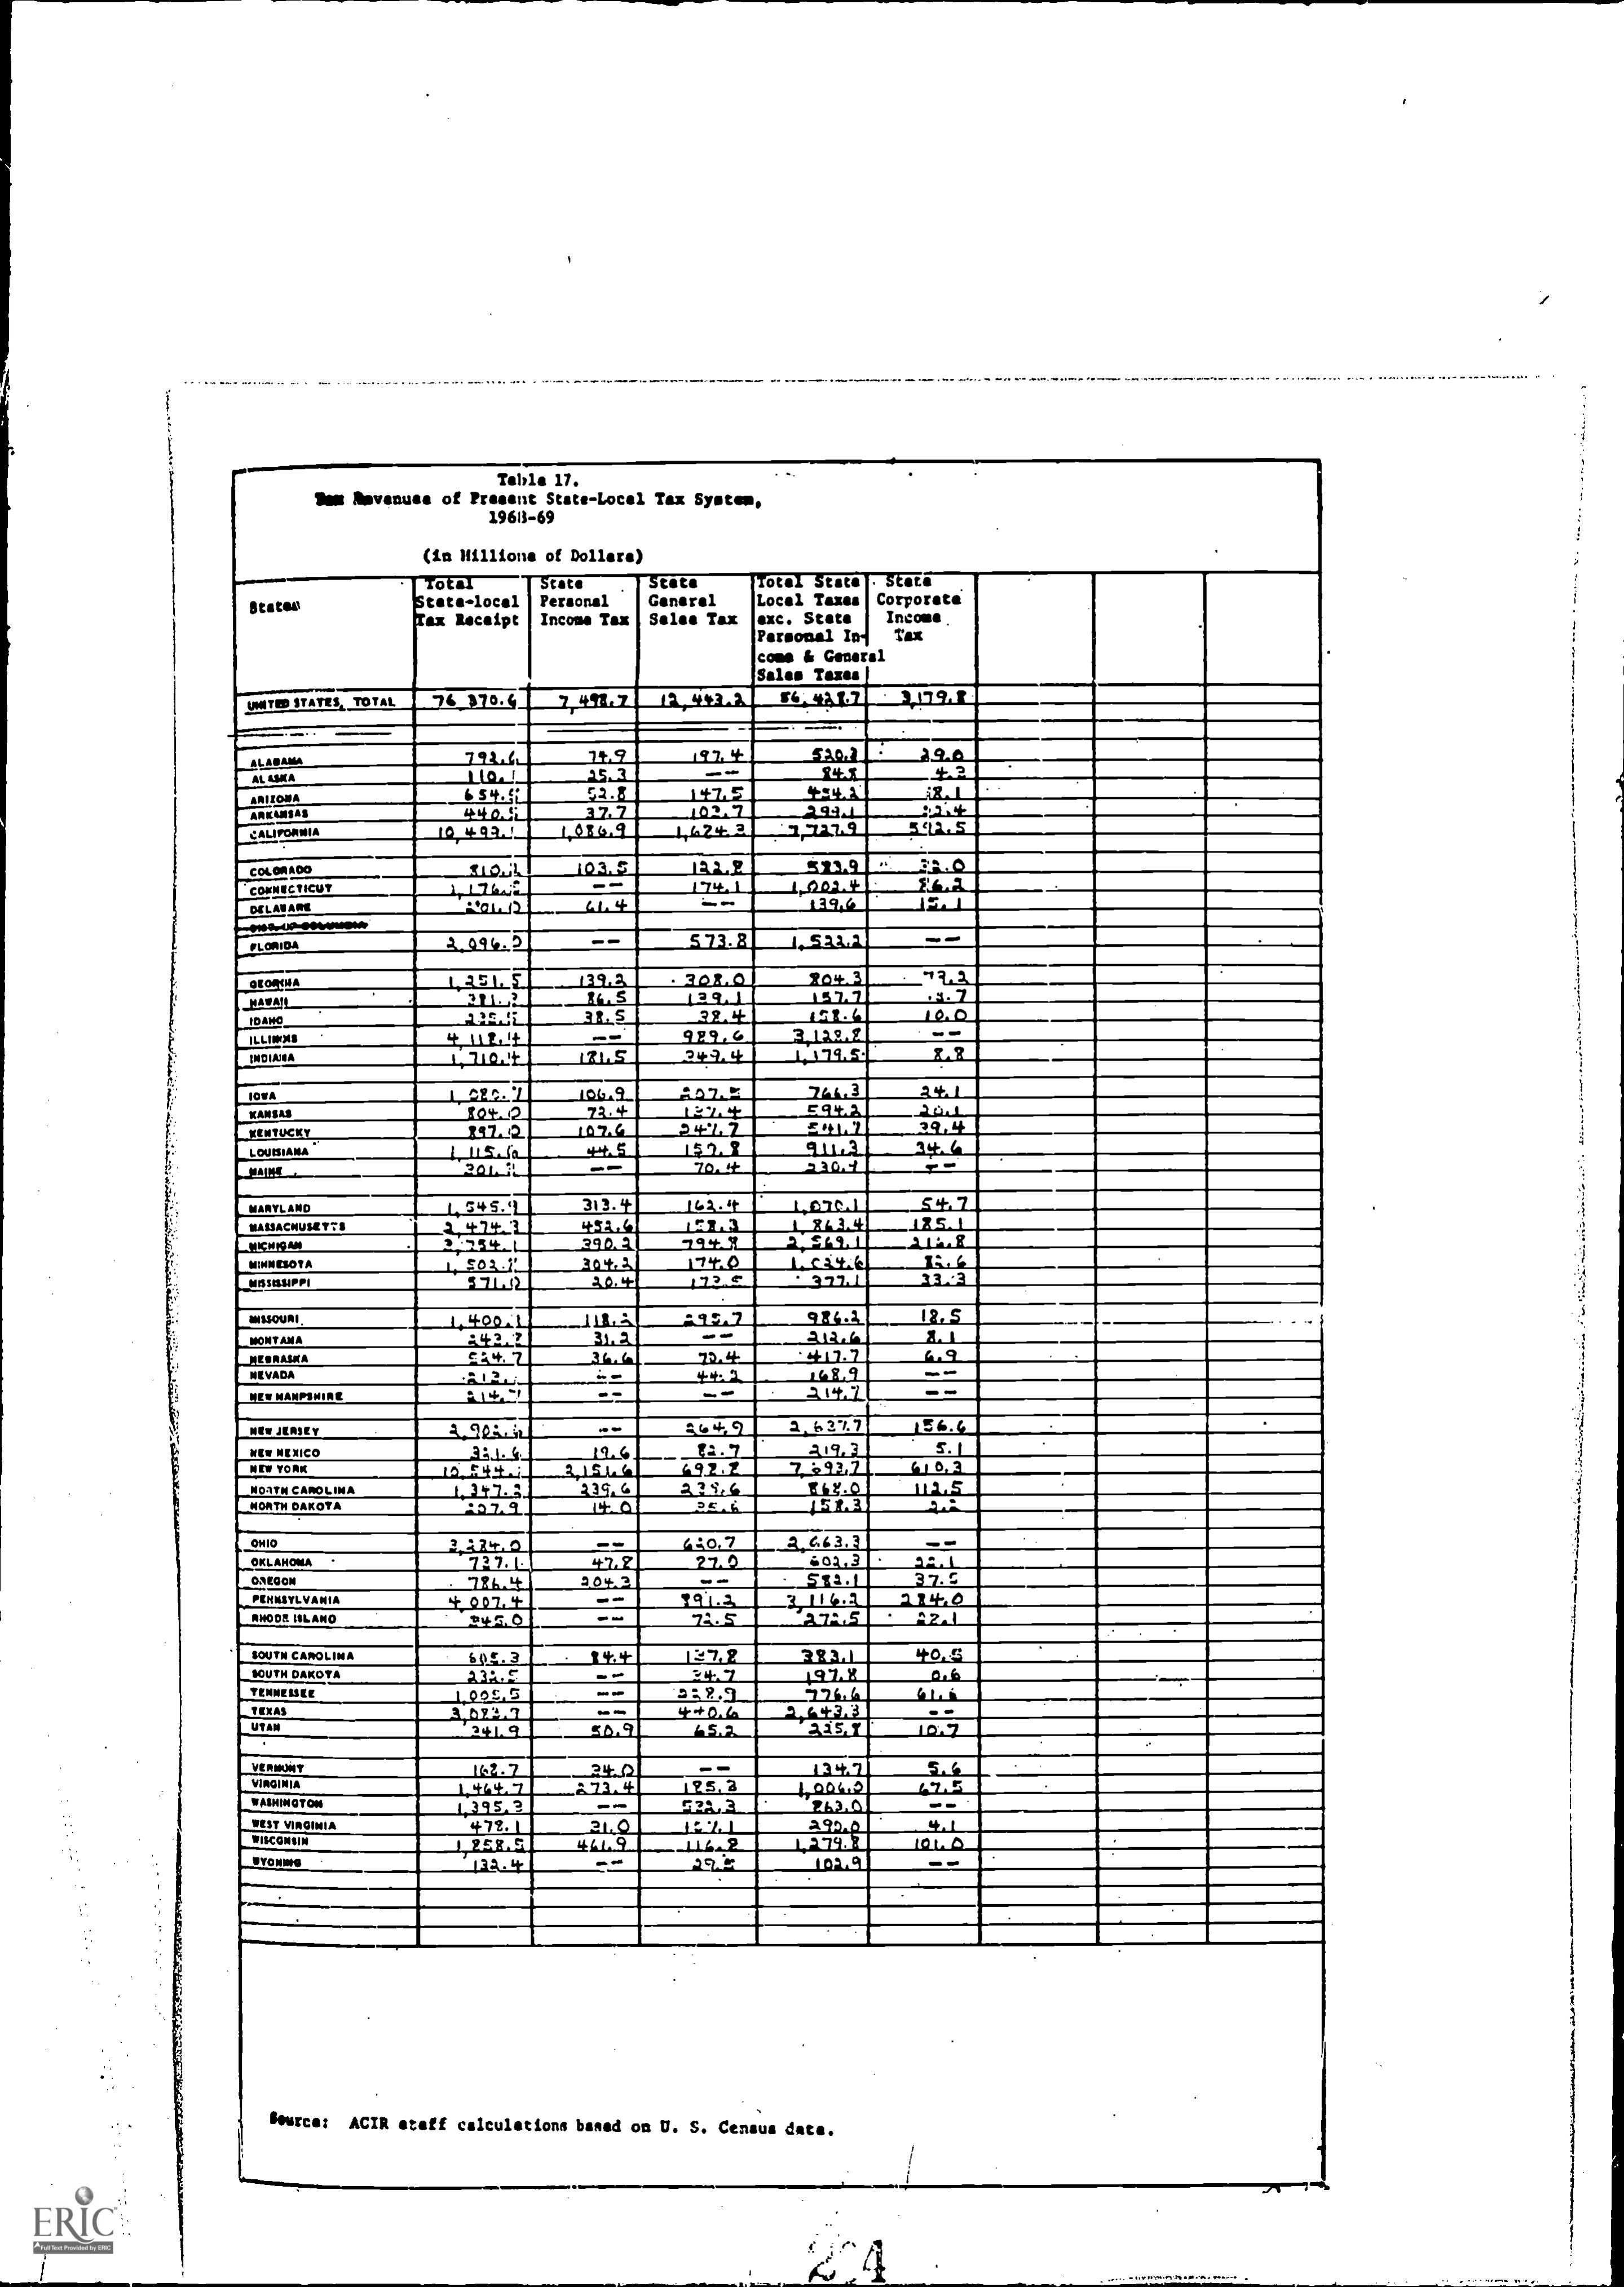 Table 17.
Tax Revenues of Present State-Local Tax System,
1968-69
(in Millions of Dollars)
States Total State-local Tax Receipt State Personal Income Tax State General Sales Tax Total State Local Taxes exc. State Personal In- come & General Sales Taxes State Corporate Income Tax
UNITED STATES, TOTAL 76,370.6 7,498.7 12,443.2 56,428.7 3,179.8
ALABAMA 792.6 74.9 197.4 520.3 29.0
ALASKA 110.1 25.3 -- 84.8 4.3
ARIZONA 654.5 52.8 147.5 454.2 18.1
ARKANSAS 440.5 37.7 103.7 299.1 22.4
CALIFORNIA 10,493.1 1,086.9 1,624.3 7,727.9 592.5
COLORADO 810.2 103.5 122.8 583.9 32.0
CONNECTICUT 1,176.5 -- 174.1 1,002.4 86.2
DELAWARE 201.0 61.4 -- 139.6 15.1
DIST. OF COLUMBIA
FLORIDA 2,096.0 -- 573.8 1,522.2 --
GEORGIA 1,251.5 139.2 308.0 804.3 73.2
HAWAII 86.5 139.1 157.7
IDAHO 235.5 38.5 38.4 158.6 10.0
ILLINOIS 4,118.4 -- 989.6 3,128.8 --
INDIANA 1,710.4 181.5 349.4 1,179.5 8.8
IOWA 1,080.7 106.9 207.5 766.3 24.1
KANSAS 804.0 72.4 137.4 594.2 20.1
KENTUCKY 897.0 107.6 247.7 541.7 39.4
LOUISIANA 1,115.6 44.5 159.8 911.3 34.6
MAINE 301.1 -- 70.4 230.7 --
MARYLAND 1,545.9 313.4 162.4 1,070.1 54.7
MASSACHUSETTS 2,474.3 452.6 158.3 1,863.4 185.1
MICHIGAN 3,754.1 390.2 794.8 2,569.1
MINNESOTA 1,502.8 304.2 174.0 1,024.6 82.6
MISSISSIPPI 571.0 20.4 173.5 377.1 33.3
MISSOURI 1,400.1 118.2 295.7 986.2 18.5
MONTANA 243.8 31.2 -- 212.6 8.1
NEBRASKA 524.7 36.6 70.4 417.7 6.9
NEVADA 213.1 -- 44.2 168.9 --
NEW HAMPSHIRE 214.7 -- -- 214.7 --
NEW JERSEY 2,902.6 -- 264.9 2,637.7 156.6
NEW MEXICO 321.6 19.6 82.7 219.3 5.1
NEW YORK 10,544.1 2,151.6 698.8 7,693.7 610.3
NORTH CAROLINA 1,347.2 239.6 239.6 868.0 112.5
NORTH DAKOTA 207.9 14.0 35.6 158.3 2.2
OHIO 3,284.0 -- 620.7 2,663.3 --
OKLAHOMA 737.1 47.8 87.0 602.3 22.1
OREGON 786.4 204.3 -- 582.1 37.5
PENNSYLVANIA 4,007.4 -- 891.2 3,116.2 284.0
RHODE ISLAND 345.0 -- 72.5 272.5 22.1
SOUTH CAROLINA 605.3 84.4 137.8 383.1 40.5
SOUTH DAKOTA 232.5 -- 34.7 197.8 0.6
TENNESSEE 1,005.5 -- 228.9 776.6 61.6
TEXAS 3,083.9 -- 440.6 2,643.3 --
UTAH 341.9 50.9 65.2 225.8 10.7
VERMONT 168.7 34.0 -- 134.7 5.6
VIRGINIA 1,464.7 273.4 185.3 1,006.0 67.5
WASHINGTON 1,395.3 -- 532.3 863.0 --
WEST VIRGINIA 478.1 31.0 157.1 290.0 4.1
WISCONSIN 1,858.5 461.9 116.8 1,279.8 101.0
WYOMING 132.4 -- 29.5 102.9 --
Source: ACIR staff calculations based on U. S. Census data.
ERIC
Full Text Provided by ERIC
24